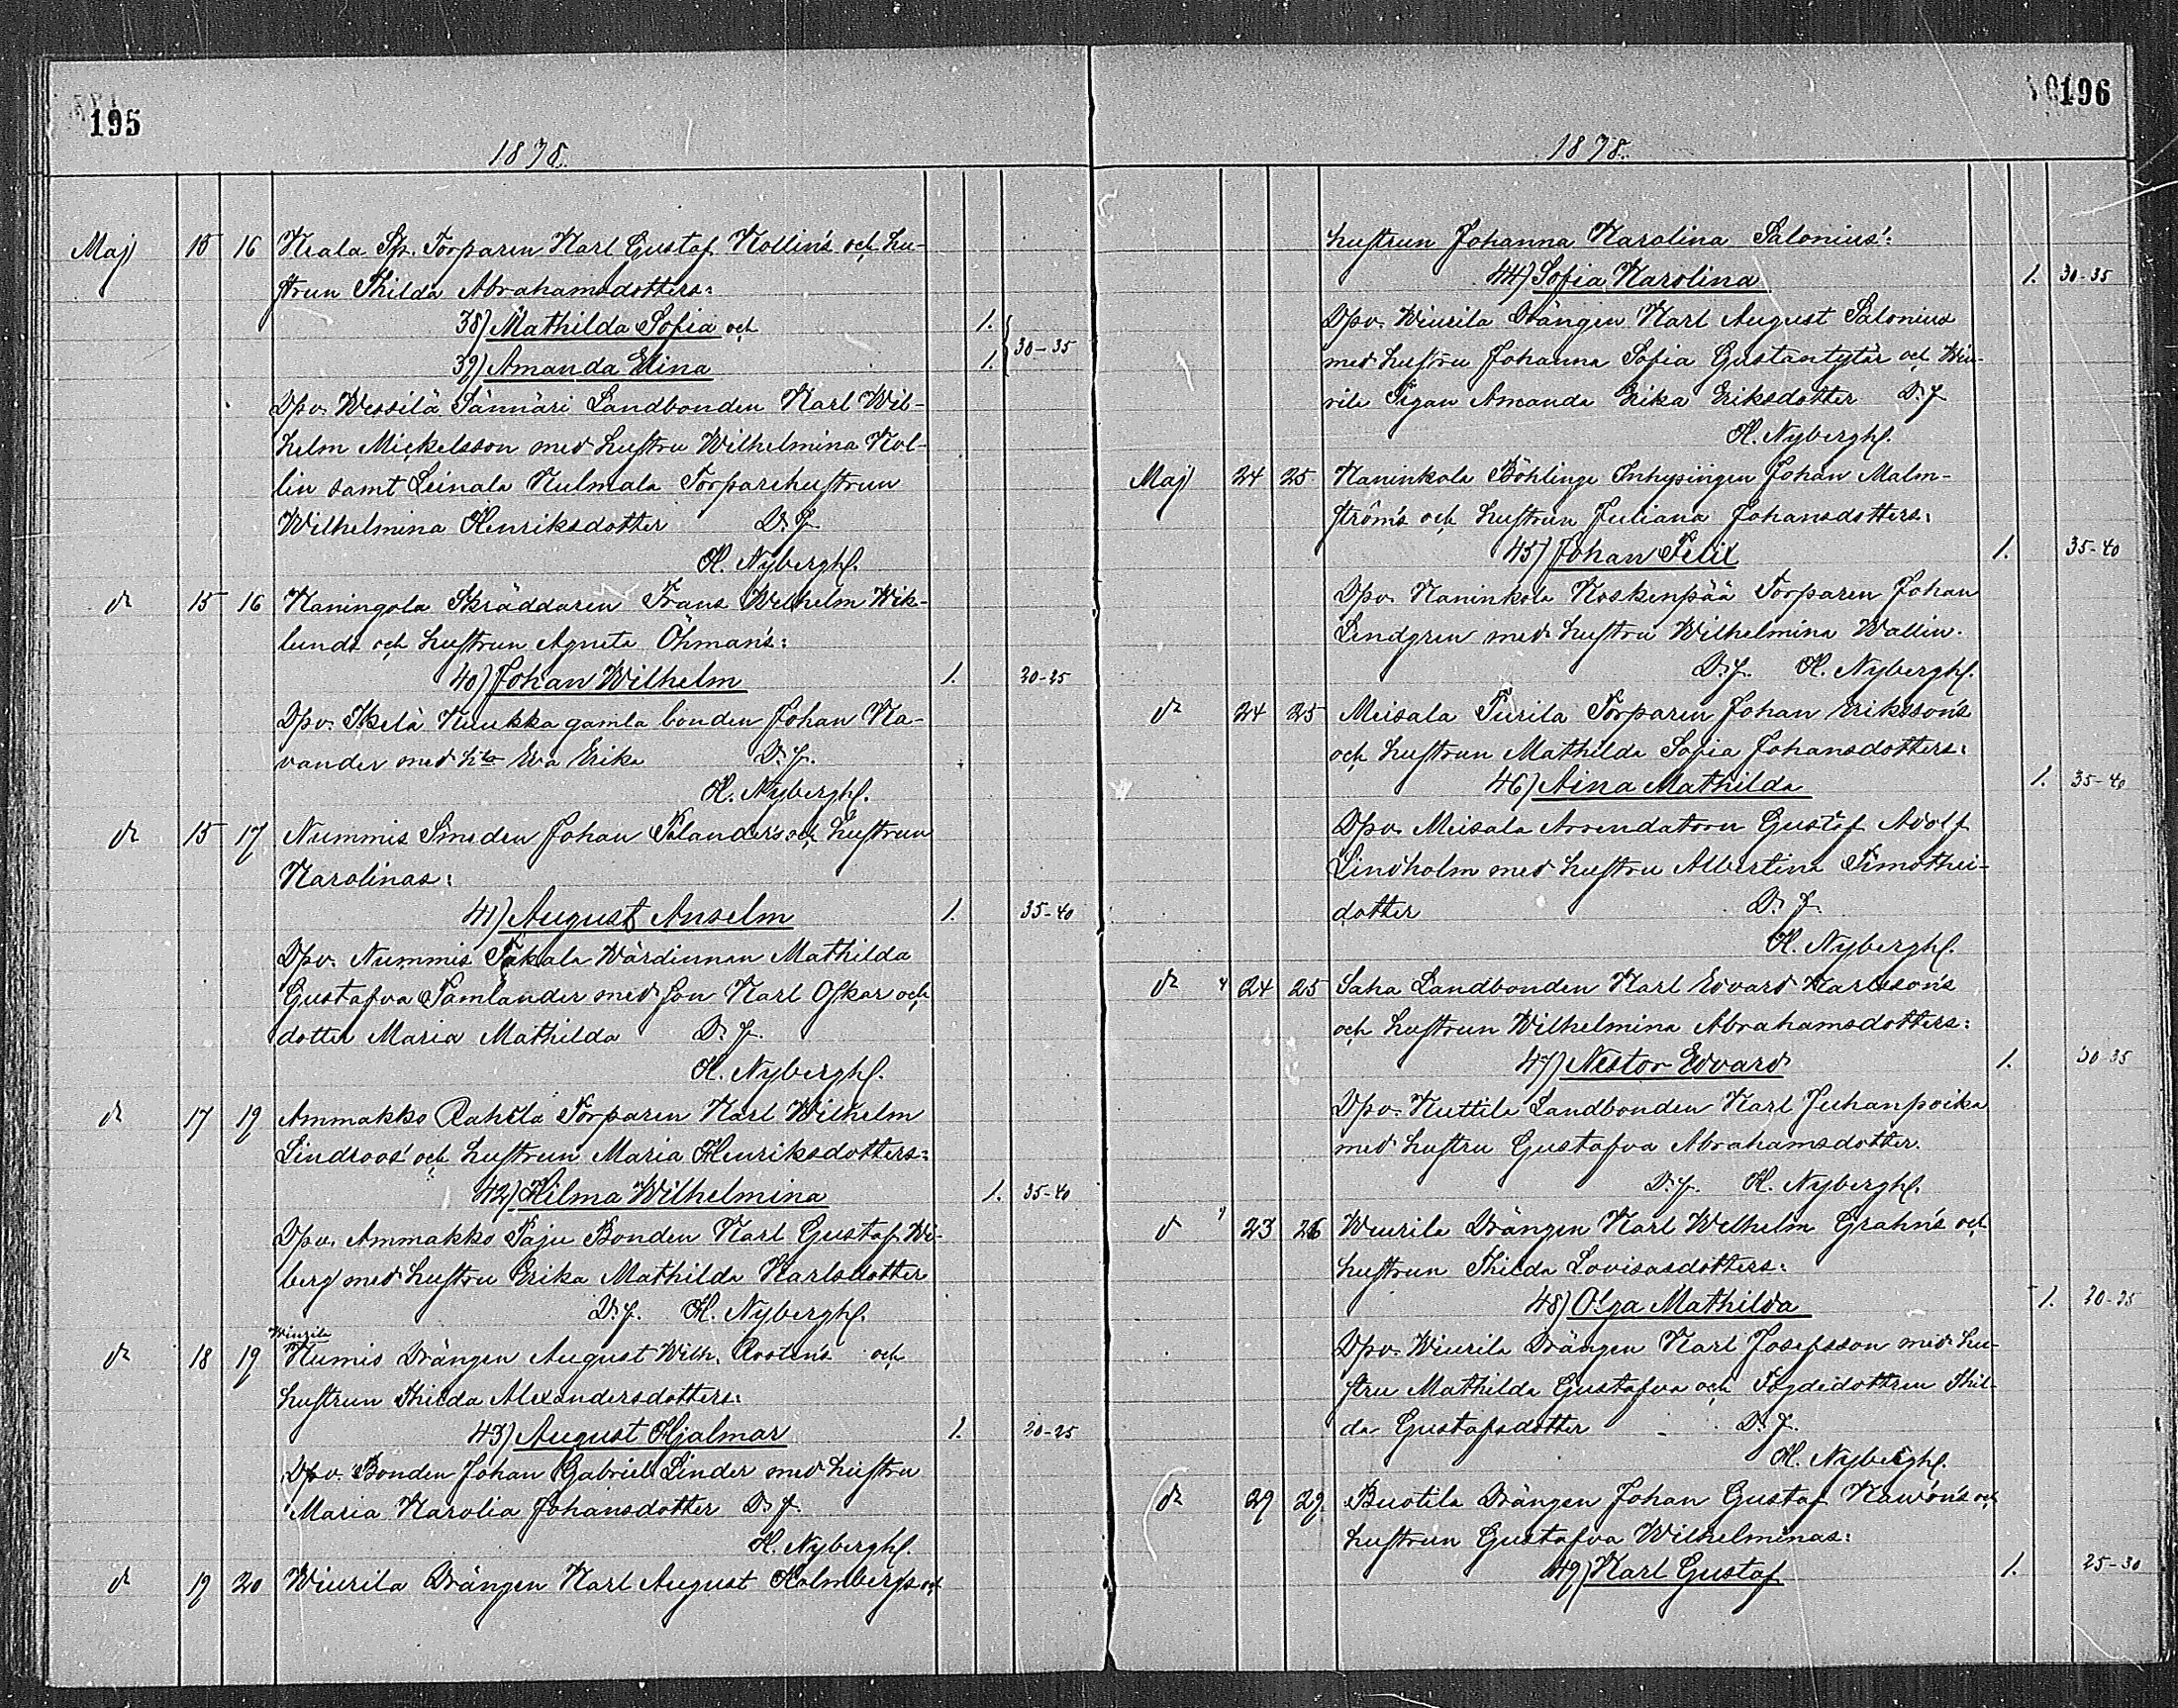 195
1878.
Maj 15 16 Keala Sp. Torparen Karl Gustaf Kollin's och hu-
strun Thilda Abrahamsdotters:
38) Mathilda Sofia och 1.
39) Amanda Elina 1. 30-35
Dpv. Wessilä Sännäri Landbonden Karl Wil-
helm Mickelsson med hustru Wilhelmina Kol-
lin samt Leinala Kulmala Torparehustrun
Wilhelmina Henriksdotter D. f.
H. Nybergh.
dr 15 16 Kaningola Skräddaren Frans Wilhelm Wik-
lunds och hustrun Agneta Öhman's:
40) Johan Wilhelm 1. 20-25
Dpv. Ikelä Kuukka gamla bonden Johan Ka-
vander med h:ta Eva Erika D. f.
H. Nybergh.
dr 15 17 Nummis Smeden Johan Palander's och hustrun
Karolinas:
41) August Anselm 1. 35-40
Dpv. Nummis Takala Wärdinnan Mathilda
Gustafva Tamlander med son Karl Oskar och
dotter Maria Mathilda D. f.
H. Nybergh.
dr 17 19 Ammakko Rahila Torparen Karl Wilhelm
Lindroos' och hustrun Maria Henriksdotters:
42) Hilma Wilhelmina 1. 35-40
Dpv. Ammakko Paju Bonden Karl Gustaf Wi-
berg med hustru Erika Mathilda Karlsdotter
D. f. H. Nybergh.
Wiurila
dr 18 19 Numis Drängen August Wilh. Rosten's och
hustrun Thilda Alexandersdotters:
43) August Hjalmar 1. 20-25
Dpv. Bonden Johan Gabriel Linder med hustru
Maria Karolia Johansdotter D. f.
H. Nybergh.
dr 19 20 Wiurila Drängen Karl August Holmbergs och
196
1878.
hustrun Johanna Karolina Salonius':
44) Sofia Karolina 1. 30-35
Dpv. Wiurila Drängen Karl August Salonius
med hustru Johanna Sofia Gustantytär och Wiu-
rila Pigan Amanda Erika Eriksdotter D. f.
H. Nybergh.
Maj 24 25 Kaninkola Böhlinge Inhysingen Johan Malm-
ström's och hustrun Juliana Johansdotters:
45) Johan Felix 1. 35-40
Dpv. Kaninkola Koskenpää Torparen Johan
Lindgren med hustru Wilhelmina Wallin.
D. f. H. Nybergh.
dr 24 25 Meisala Turila Torparen Johan Eriksson's
och hustrun Mathilda Sofia Johansdotters:
46) Aina Mathilda 1. 35-40
Dpv. Meisala Arrendatorn Gustaf Adolf
Lindholm med hustru Albertina Timothei-
dotter D. f.
H. Nybergh.
dr 24 25 Saha Landbonden Karl Edvard Karlsson's
och hustrun Wilhelmina Abrahamsdotters:
47) Nestor Edvard 1. 30-35
Dpv. Kuttila Landbonden Karl Juhanpoika
med hustru Gustafva Abrahamsdotter.
D. f. H. Nybergh.
dr 23 26 Wiurila Drängen Karl Wilhelm Grahn's och
hustrun Thilda Lovisasdotters:
48) Olga Mathilda 1. 20-25
Dpv. Wiurila Drängen Karl Josefsson med hu-
stru Mathilda Gustafva och Fogdedottren Thil-
da Gustafsdotter D. f.
H. Nybergh.
dr 29 29. Buotila Drängen Johan Gustaf Kawén's och
hustrun Gustafva Wilhelminas:
49) Karl Gustaf 1. 25-30